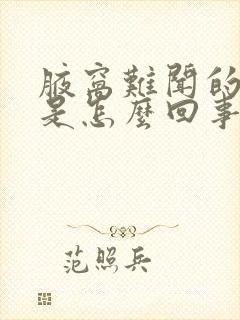 腋窩難聞的
是怎麼回事
范照兵